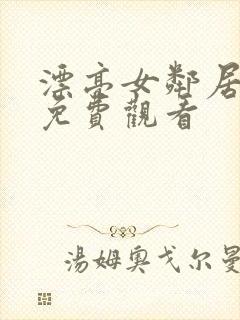 漂亮女鄰居
免費觀看
湯姆奧戈尔曼